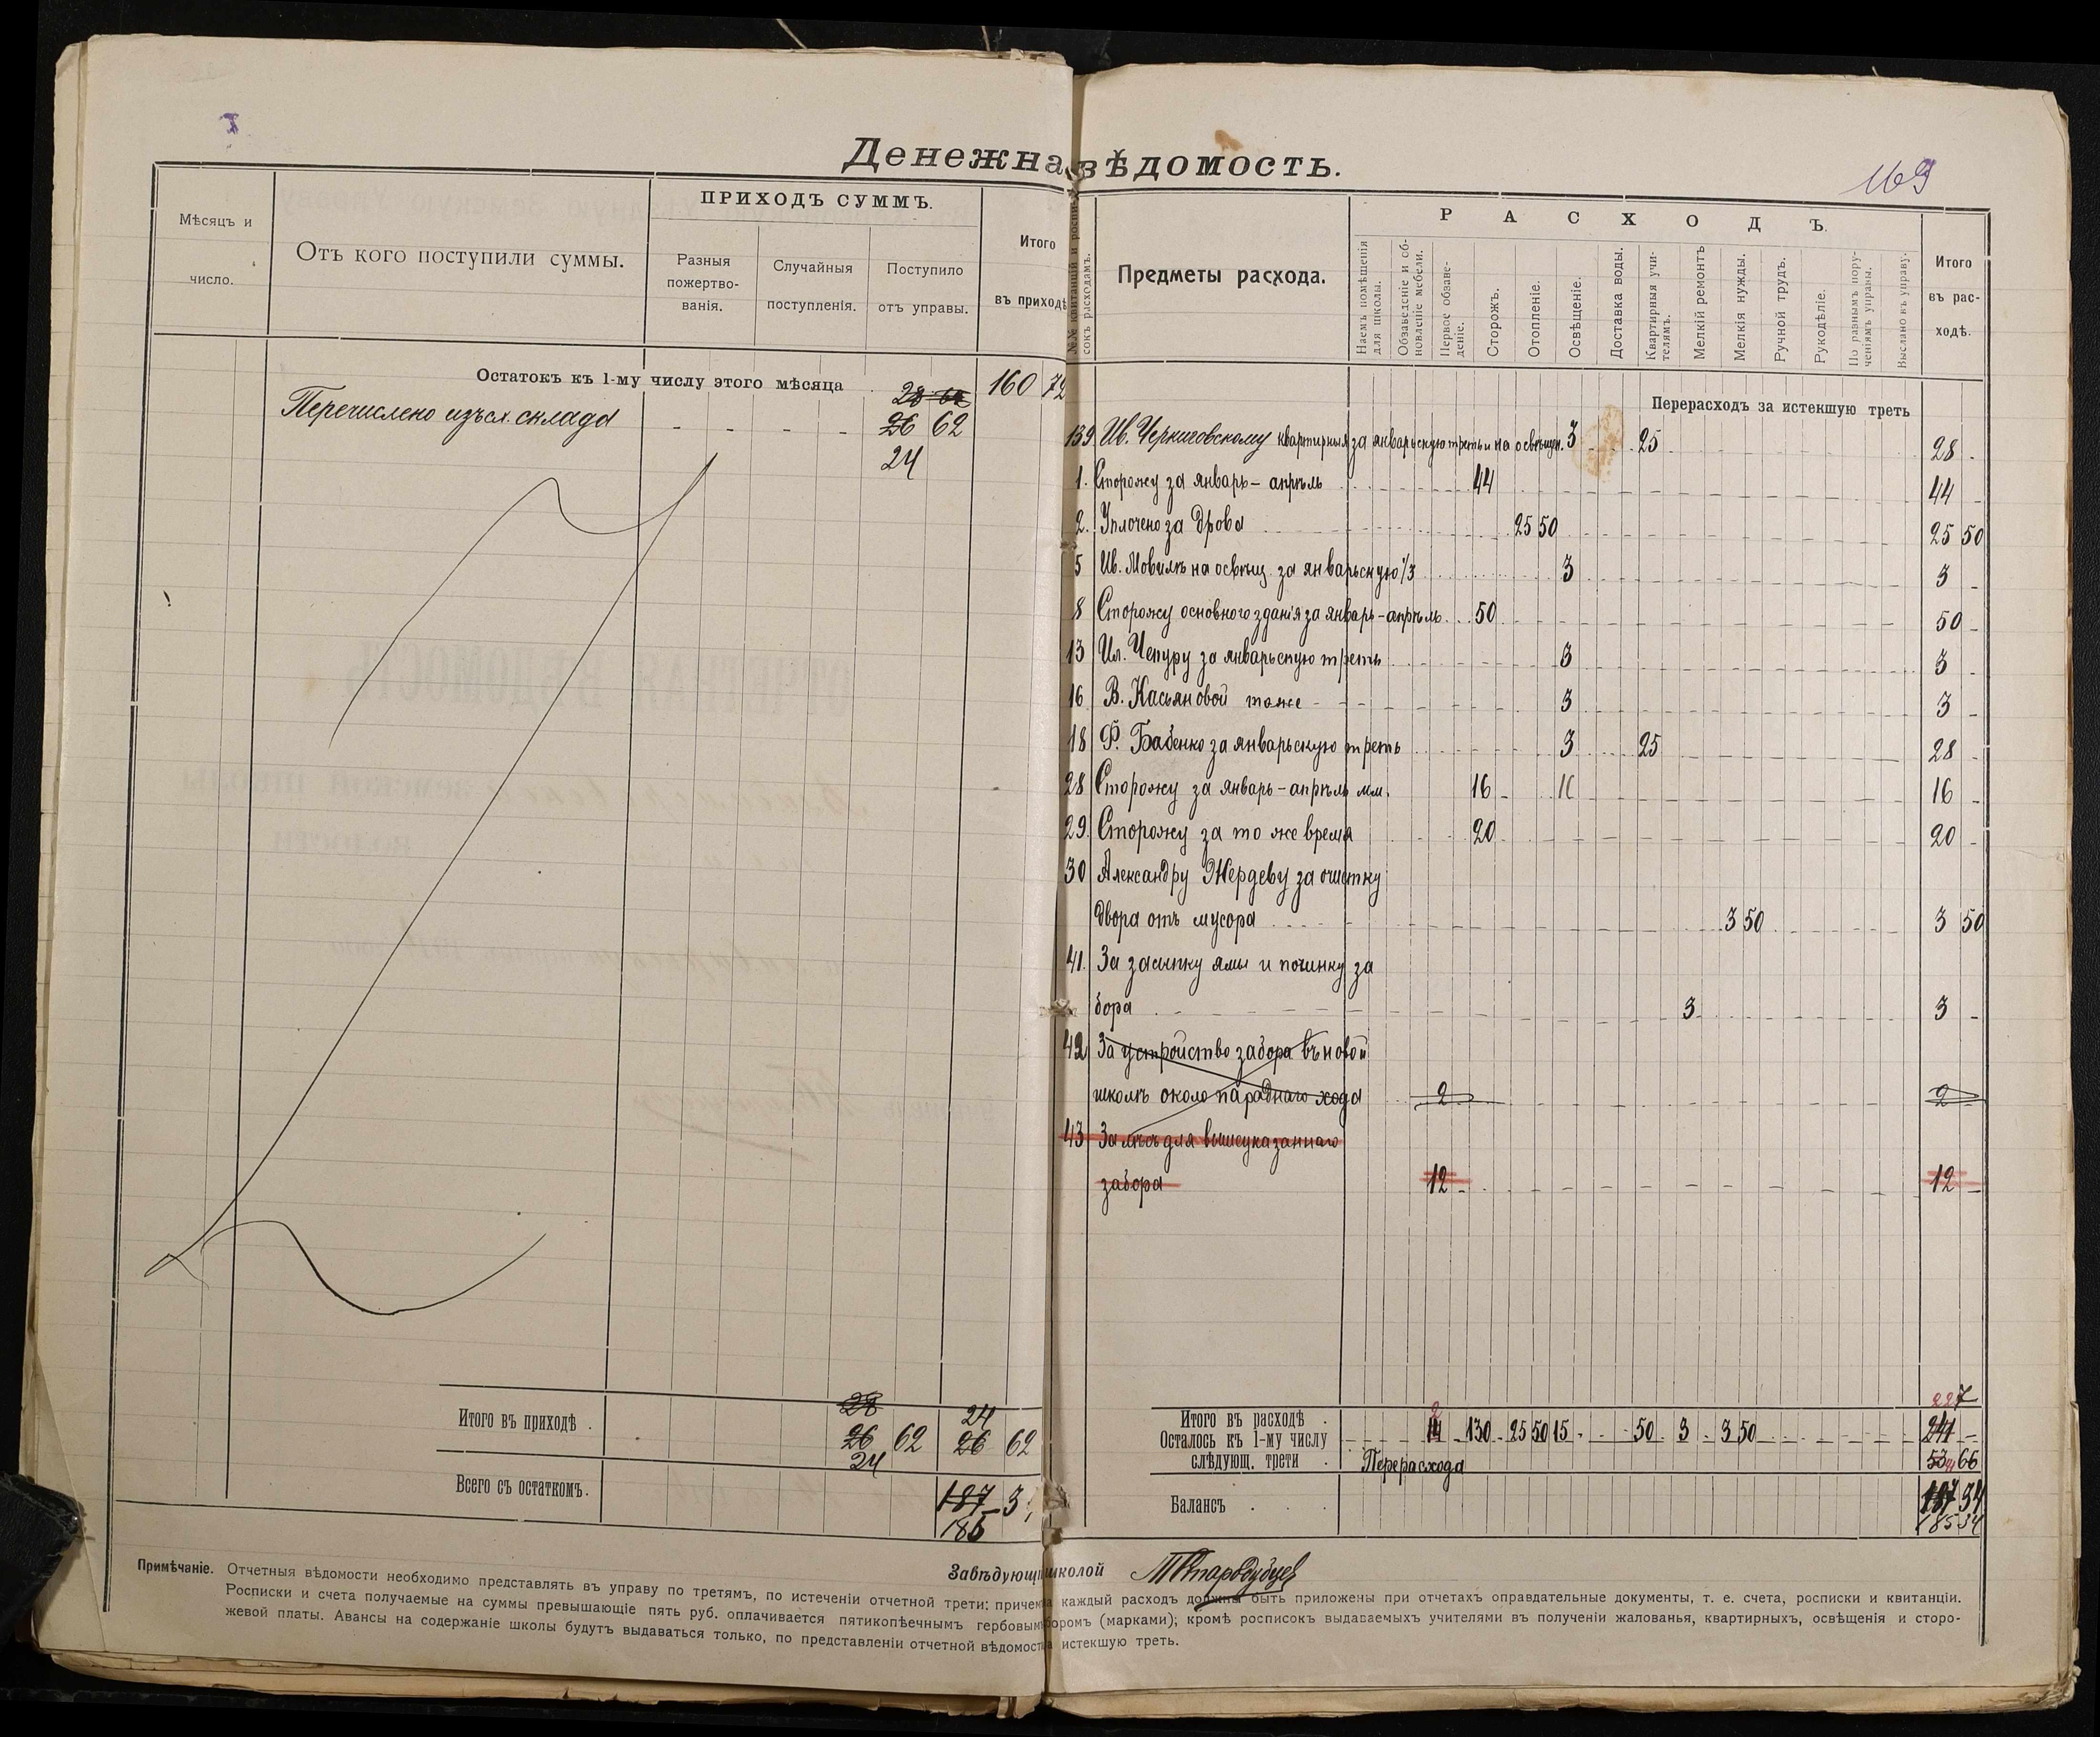 169
Денежна вѣдомость.
Мѣсяцъ и
число.
Отъ кого поступили суммы.
ПРИХОДЪ СУММЪ.
Разныя
пожертво-
ванія.
Случайныя
поступленія.
Поступило
отъ управы.
Итого
въ приходѣ
Остатокъ къ 1-му числу этого мѣсяца
160 72
28 62
Перечислено изъ сл. склада
26 62
24
Итого въ приходѣ .
28
26 62
24
24
26 62
Всего съ остаткомъ.
187 3
185
№№ квитанцій и роспи-
сокъ расходамъ.
Предметы расхода.
РАСХОДЪ.
Наемъ помѣщенія
для школы.
Обзаведеніе и об-
новленіе мебели.
Первое обзаве-
деніе.
Сторожъ.
Отопленіе.
Освѣщеніе.
Доставка воды.
Квартирныя учи-
телямъ.
Мелкій ремонтъ
Мелкія нужды.
Ручной трудъ.
Рукодѣліе.
По разнымъ пору-
ченіямъ управы.
Выслано въ управу.
Итого
въ рас-
ходѣ.
Перерасходъ за истекшую треть
139 Ив. Черниговскому квартирныя за январьскую треть и на освѣщен. 3 25 28 -
1. Сторожу за январь - апрѣль 44 44 -
2. Уплочено за дрова 25 50 25 50
5 Ив. Мовилѣ на освѣщ. за январьскую 1/3 3 3 -
8 Сторожу основного зданія за январь - апрѣль 50 50 -
13 Ил. Чепуру за январьскую треть 3 3 -
16 В. Касьяновой тоже 3 3 -
18 Ф. Бабенко за январьскую треть 3 25 28 -
28 Сторожу за январь - апрѣль мм. 16 - 16 -
29. Сторожу за то же время 20 20 -
30 Александру Жердеву за очистку
двора отъ мусора 3 50 3 50
41. За засыпку ямы и починку за
бора 3 3 -
42 За устройство забора въ новой
школѣ около параднаго хода 2 2
43 За лѣсъ для вышеуказаннаго
забора 12 - 12 -
227
Итого въ расходѣ . 2 14 - 130 - 25 50 15 - 50 3 - 3 50 241 -
Осталось къ 1-му числу
слѣдующ. трети . Перерасхода 53 66
Балансъ . . . 187 34
185 34
Завѣдующ школой
Примѣчаніе. Отчетныя вѣдомости необходимо представлять въ управу по третямъ, по истеченіи отчетной трети: причем каждый расходъ должны быть приложены при отчетахъ оправдательные документы, т. е. счета, росписки и квитанціи.
Росписки и счета получаемые на суммы превышающіе пять руб. оплачивается пятикопѣечнымъ гербовым боромъ (марками); кромѣ росписокъ выдаваемыхъ учителями въ полученіи жалованья, квартирныхъ, освѣщенія и сторо-
жевой платы. Авансы на содержаніе школы будутъ выдаваться только, по представленіи отчетной вѣдомост истекшую треть.